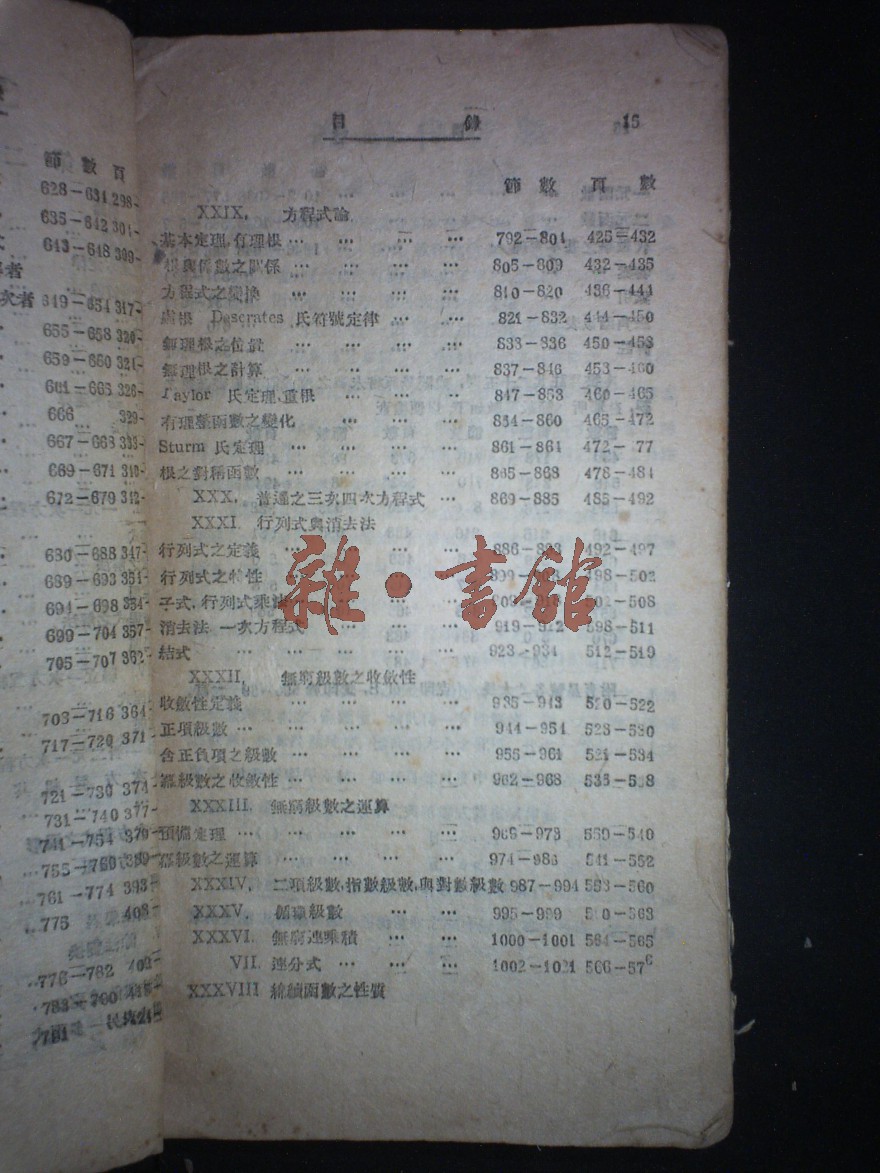 目 錄 15
節 數 頁 數
XXIX. 方程式論
基本定理,有理根… … … … 792—804 425—432
根與係數之關係… … … … 805—809 432—435
方程式之變換 … … … … 810—820 436—444
虛根 Descrates 氏符號定律… … 821—832 444—450
無理根之位置 … … … … 833—836 450—453
無理根之計算 … … … … 837—846 453—460
Taylor 氏定理,重根… … … 847—853 460—465
有理整函數之變化 … … … 854—860 465—472
Sturm 氏定理 … … … … 861—864 472— 77
根之對稱函數 … … … … 865—868 478—484
XXX. 普通之三次四次方程式 … 869—885 485—492
XXXI. 行列式與消去法
行列式之定義 … … … … 886—898 492—497
行列式之特性 … … … … 498—502
子式,行列式乘法 … … … 508
消去法 一次方程式 … … … 919—922 508—511
結式 … … … … … 923—934 512—519
XXXII. 無窮級數之收斂性
收斂性定義 … … … … 935—943 520—522
正項級數 … … … … … 944—954 523—530
含正負項之級數 … … … … 955—961 531—534
冪級數之收斂性 … … … … 962—968 535—538
XXXIII. 無窮級數之運算
預備定理 … … … … … 969—973 539—540
冪級數之運算 … … … … 974—986 541—552
XXXIV. 二項級數,指數級數,與對數級數 987—994 553—560
XXXV. 循環級數 … … … 995—999 560—563
XXXVI. 無窮連乘積 … … … 1000—1001 564—565
VII. 連分式 … … … … 1002—1021 566—576
XXXVIII 繼續函數之性質
節 數 頁
628—634 298-
635—642 304-
643—648 309-
者
次者 649—654 317-
655—658 320-
659—660 324-
661—665 326-
666 329-
667—668 333-
669—671 340-
672—679 342-
680—688 347-
689—693 351-
694—698 354-
699—704 357-
705—707 362-
708—716 364-
717—720 371-
721—730 374-
731—740 377-
741—754 379-
755—760 389-
761—774 393-
775 403-
776—782 409-
雜·書館